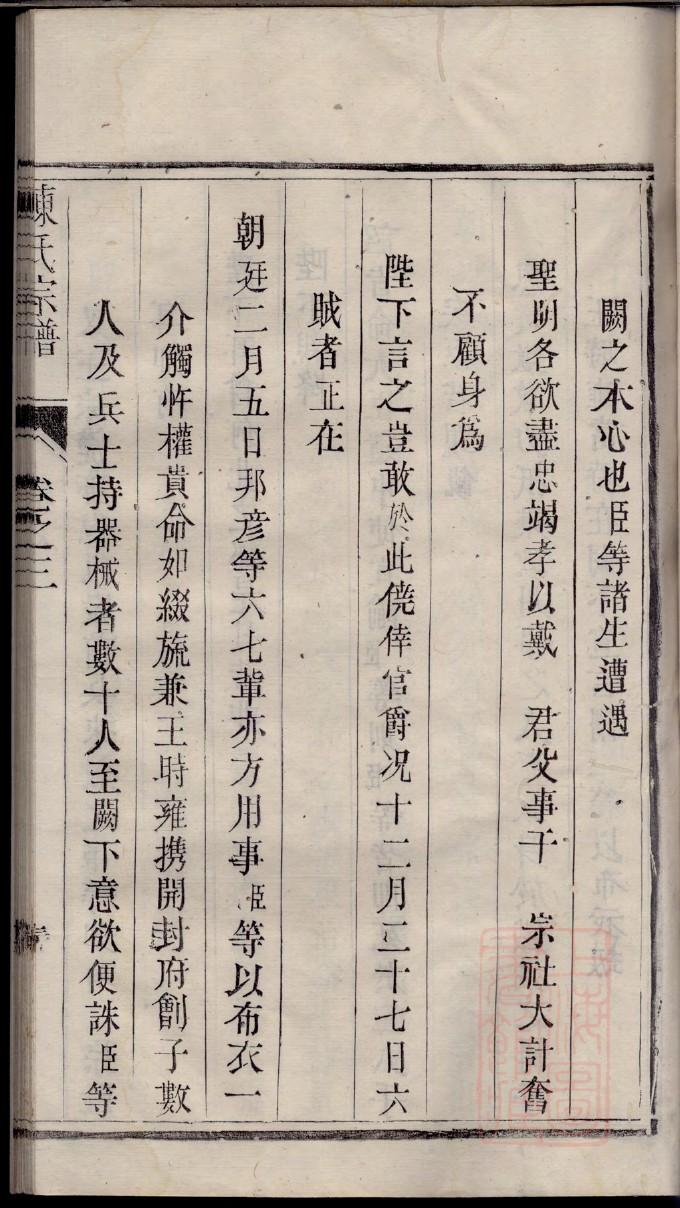 闕之本心也臣等諸生遭遇
聖明各欲盡忠竭孝以戴　君父事干　宗社大計奮
不顧身爲
陛下言之豈敢於此僥倖官爵况十二月二十七日六
賊者正在
朝廷二月五日邦彦等六七輩亦方用事臣等以布衣一
介觸忤權貴命如綴旒兼王時雍携開封府劊子數
人及兵士持器械者數十人至闕下意欲便誅臣等
陳氏宗譜
卷之三